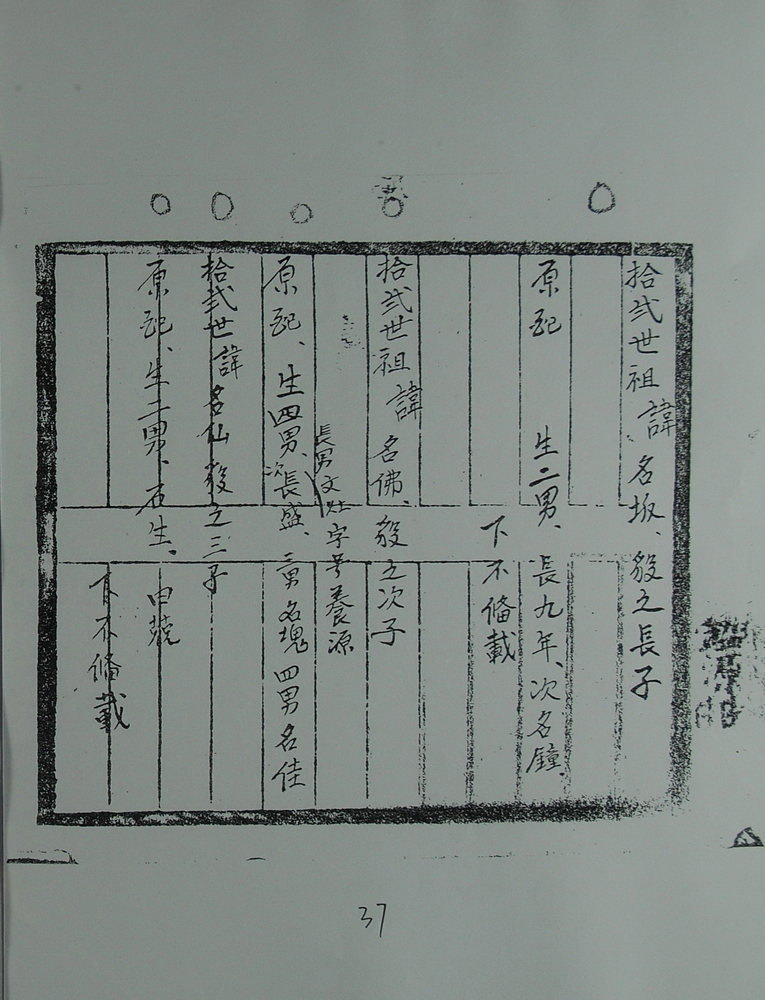 拾弍世祖諱名坂、毅之長子
原配 生二男、長九年、次名鐘
下不俻載
拾弍世祖諱名佛、毅之次子
長男文灶字号養源
原配、生四男、次長盛、三男名塊 四男名佳
拾弍世諱名仙毅之三子
原配、生二男、石生、由
下不俻載
37